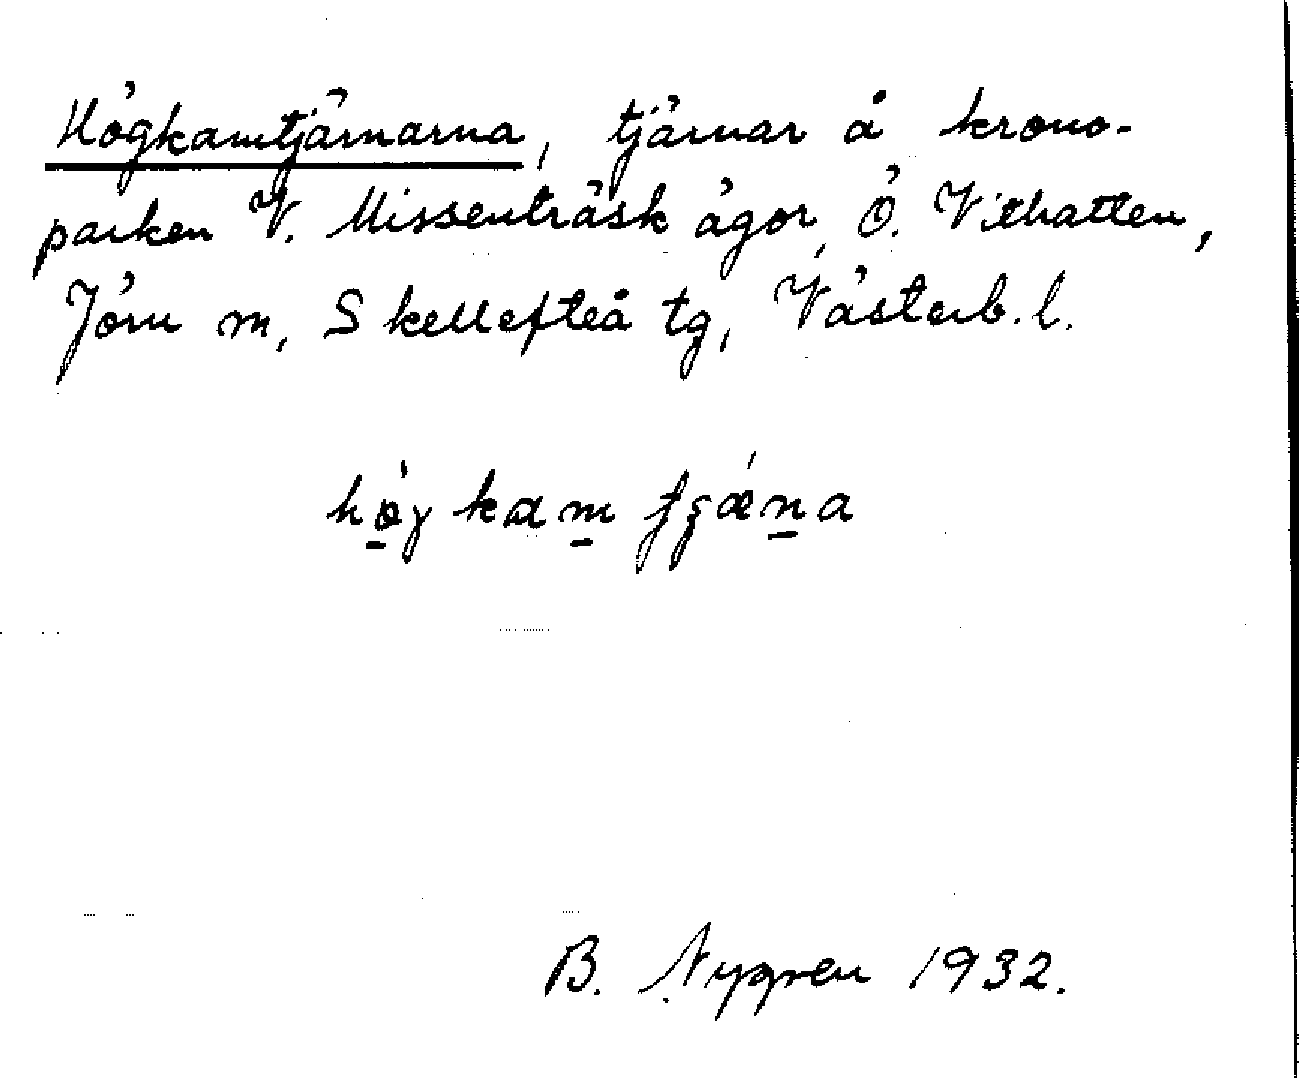 Högkamtjärnarna, tjärnar å krono-
parken V. Missenträsk ägor, Ö. Vithatten,
Jörn m, Skellefteå tg, Västerb. l.
B. Nygren 1932.